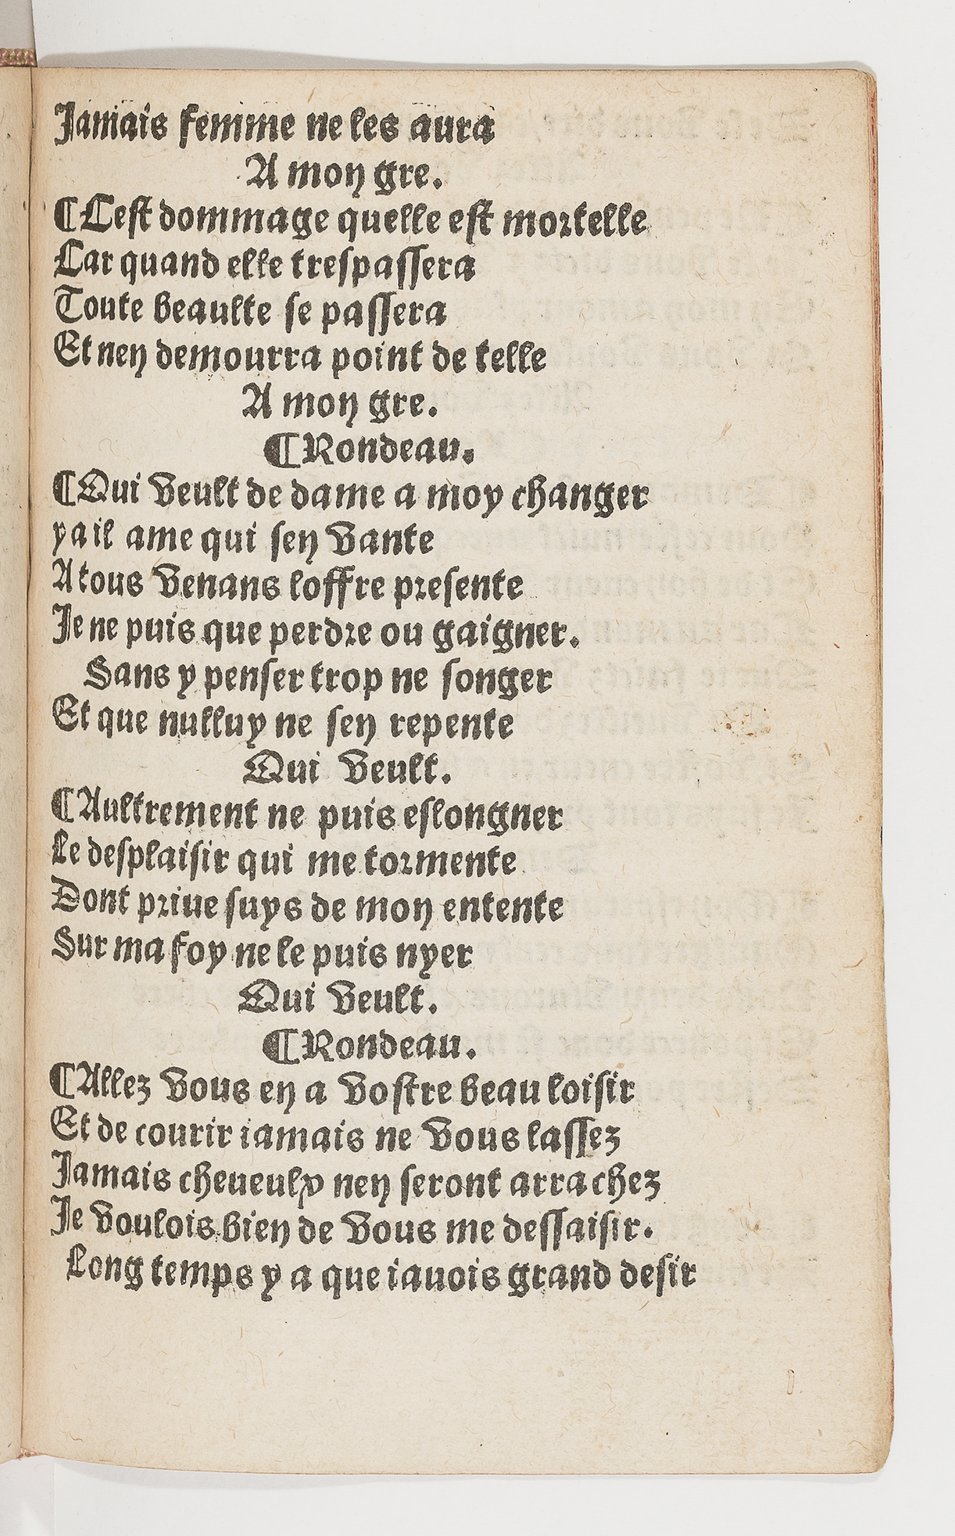 Jamais femme ne les aura
A mon gre.
¶Cest dommage quelle est mortelle
Car quand elle trespassera
Toute beaulte se passera
Et nen demourra point de telle
A mon gre.
¶Rondeau.
¶Qui veult de dame a moy changer
ya il ame qui sen vante
A tous venans loffre presente
Je ne puis que perdre ou gaigner.
Sans y penser trop ne songer
Et que nulluy ne sen repente
Qui veult.
¶Aultrement ne puis eslongner
Le desplaisir qui me tormente
Dont priue suys de mon entente
Sur ma foy ne le puis nyer
Qui veult.
¶Rondeau.
¶Allez vous en a vostre beau loisir
Et de courir iamais ne vous lassez
Jamais cheueulx nen seront arrachez
Je voulois bien de vous me dessaisir.
Long temps y a que iauois grand desir